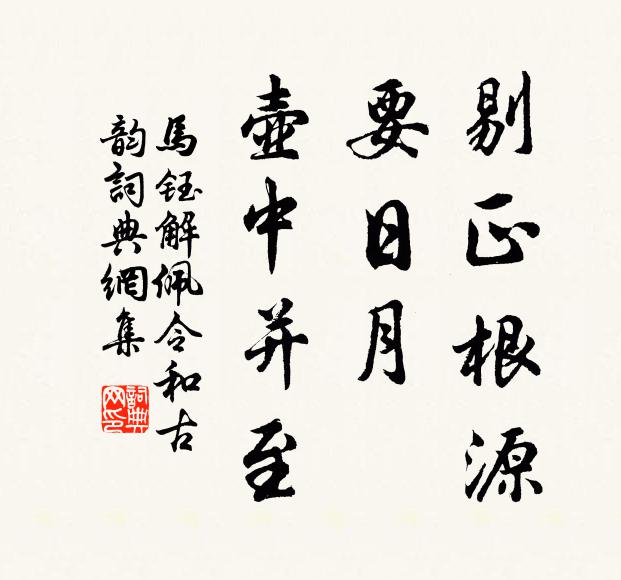 剔正根源
要日月
壺中并至
馬鈺解佩令和古
韵詞典網集
詞典网印